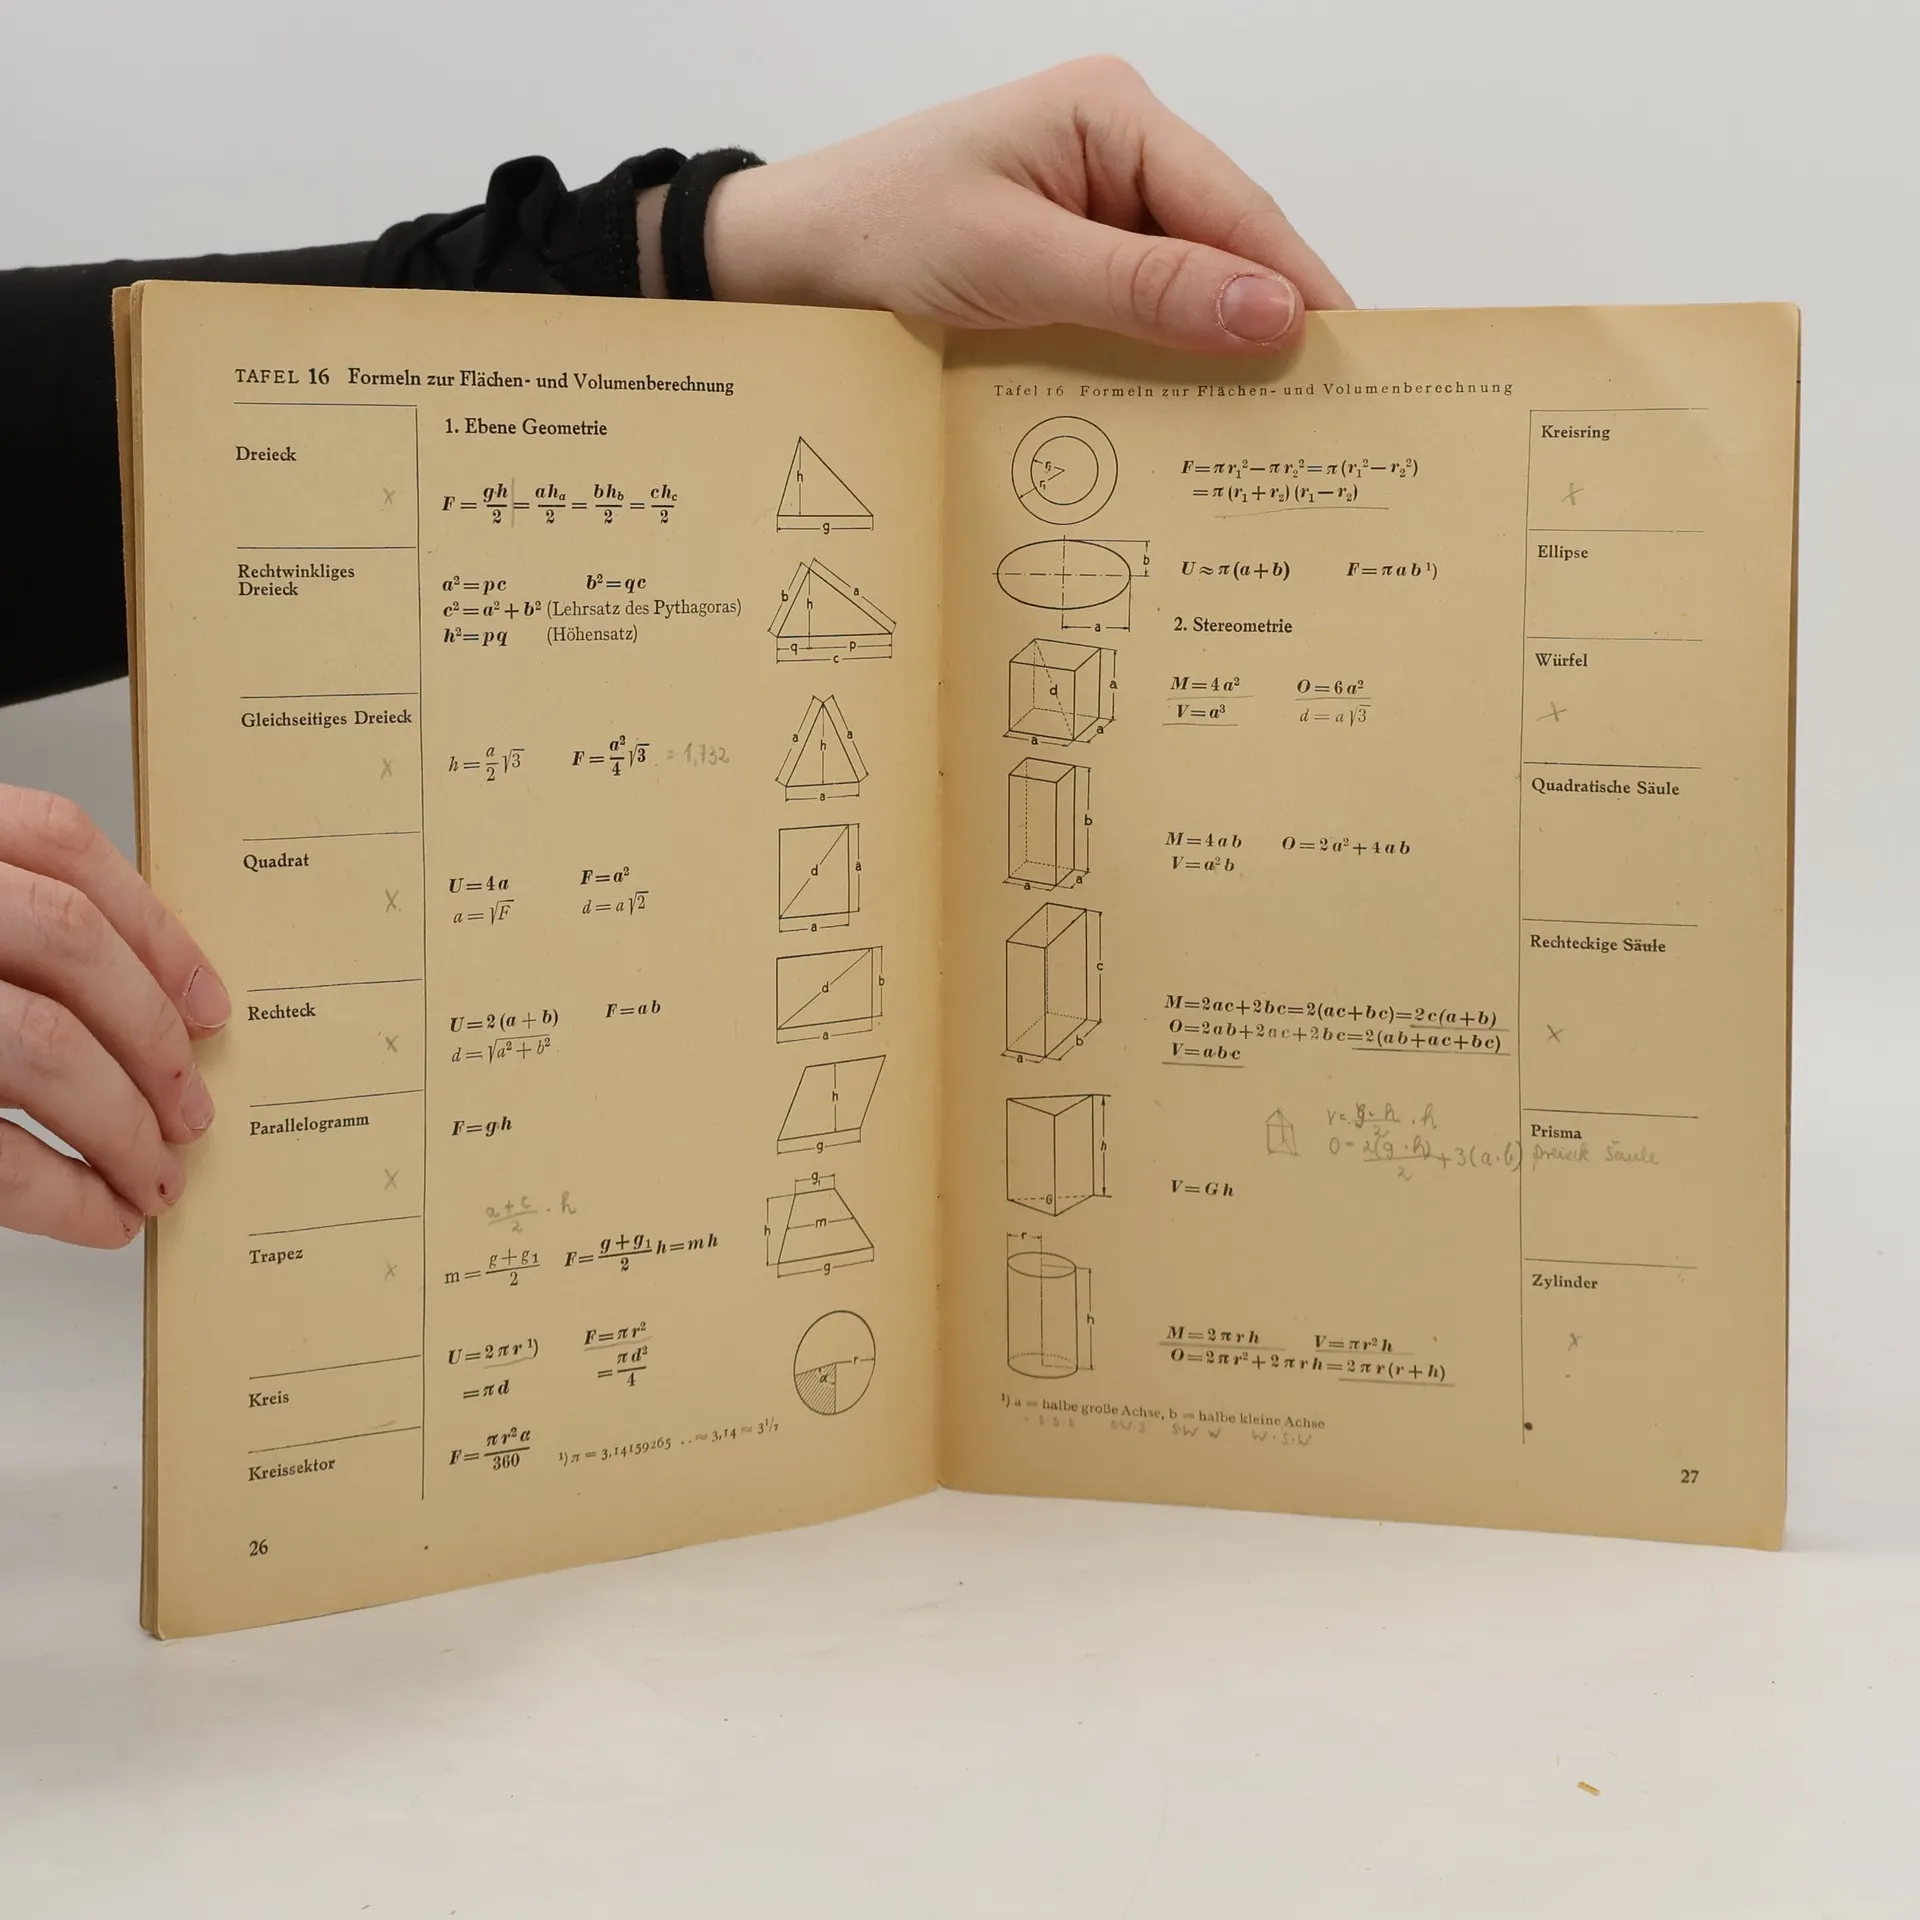 TAFEL 16 Formeln zur Flächen- und Volumenberechnung
1. Ebene Geometrie
Dreieck
x
F = gh/2 = ah_a/2 = bh_b/2 = ch_c/2
h
g
Rechtwinkliges
Dreieck
a² = pc b² = qc
c² = a² + b² (Lehrsatz des Pythagoras)
h² = pq (Höhensatz)
b h a
q p
c
Gleichseitiges Dreieck
x
h = a/2 √3 F = a²/4 √3 = 1,732
a h a
a
Quadrat
x
U = 4a F = a²
a = √F d = a√2
d a
a
Rechteck
x
U = 2(a + b) F = ab
d = √a² + b²
d b
a
Parallelogramm
x
F = gh
h
g
Trapez
x
a+c/2 . h
m = g+g₁/2 F = g+g₁/2 h = mh
g₁
h m
g
Kreis
U = 2πr ¹) F = πr²
= πd = πd²/4
r
α
Kreissektor
F = πr²α/360 ¹) π = 3,14159265 .. ≈ 3,14 ≈ 3¹/₇
26
Tafel 16 Formeln zur Flächen- und Volumenberechnung
Kreisring
x
r₂
r₁
F = πr₁² − πr₂² = π(r₁² − r₂²)
= π(r₁ + r₂)(r₁ − r₂)
Ellipse
b
a
U ≈ π(a + b) F = πab ¹)
2. Stereometrie
Würfel
x
d a
a a
M = 4a² O = 6a²
V = a³ d = a√3
Quadratische Säule
b
a a
M = 4ab O = 2a² + 4ab
V = a²b
Rechteckige Säule
x
c
a b
M = 2ac + 2bc = 2(ac + bc) = 2c(a + b)
O = 2ab + 2ac + 2bc = 2(ab + ac + bc)
V = abc
Prisma
V = g·h/2 . h
O = 2(g·h)/2 + 3(a·b) Dreieck Säule
h
G
V = Gh
Zylinder
x
r
h
M = 2πrh V = πr²h
O = 2πr² + 2πrh = 2πr(r + h)
¹) a = halbe große Achse, b = halbe kleine Achse
S.S.S S.W.S S.W.W W.S.W
27